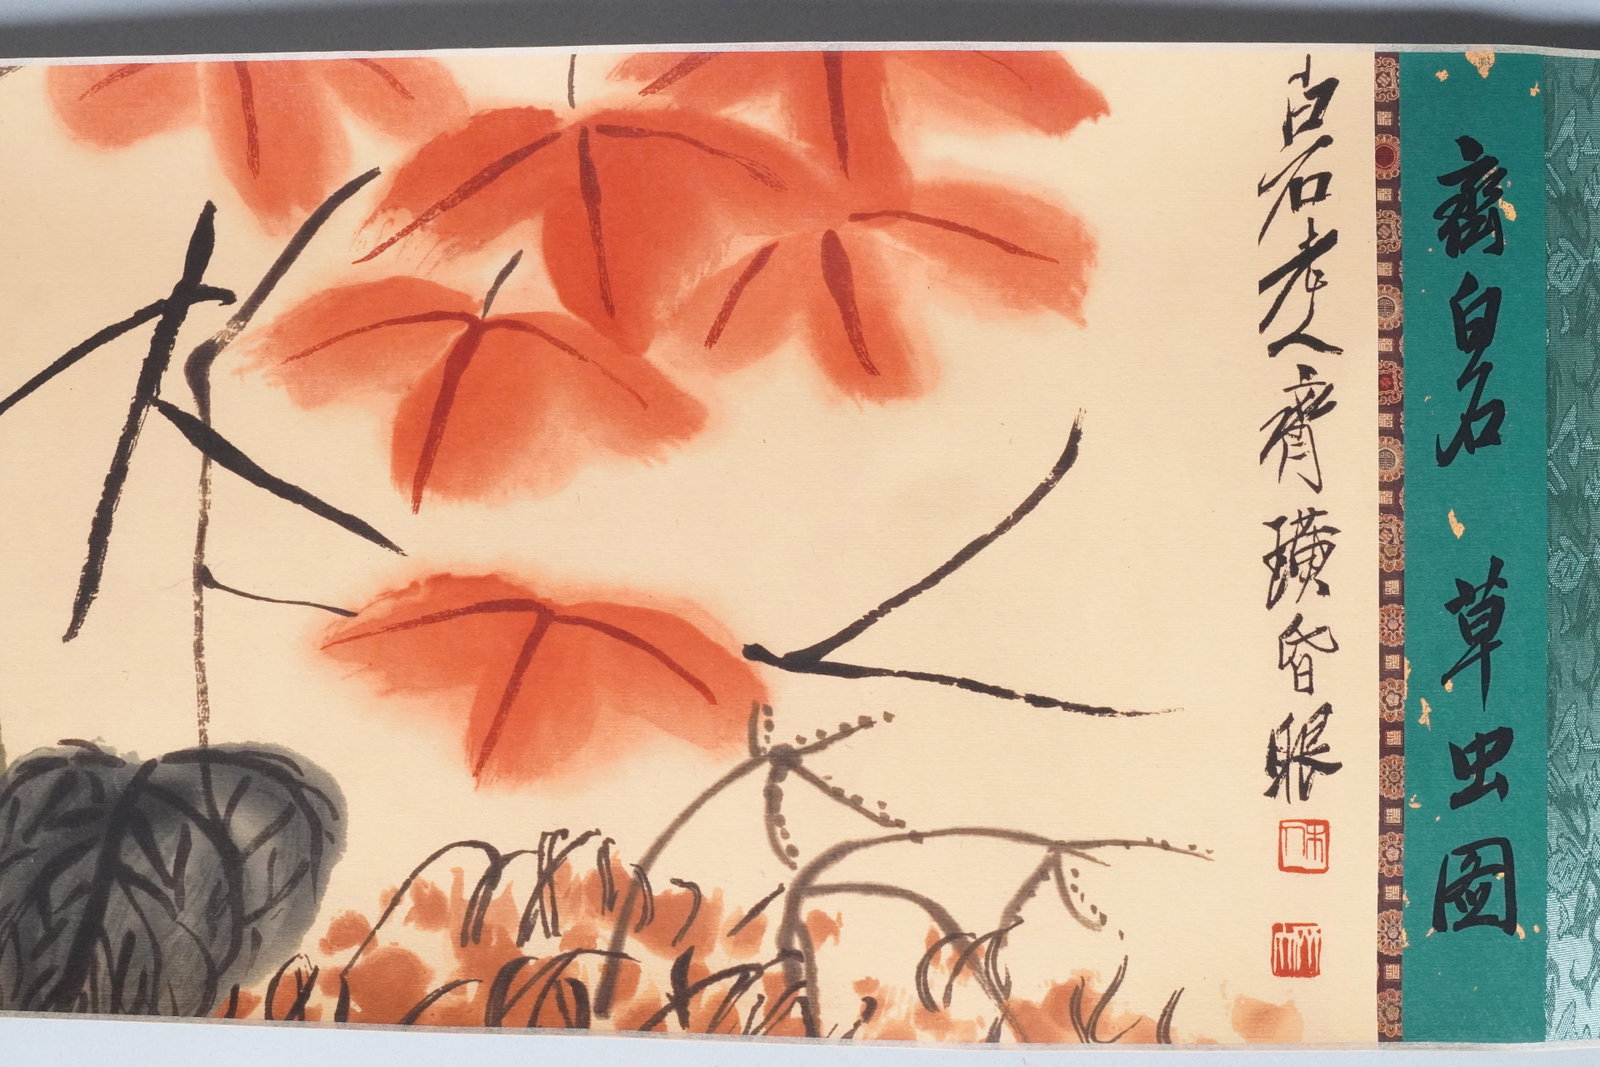 齊白石 草虫圖
白石老人齊璜昏眼
木人